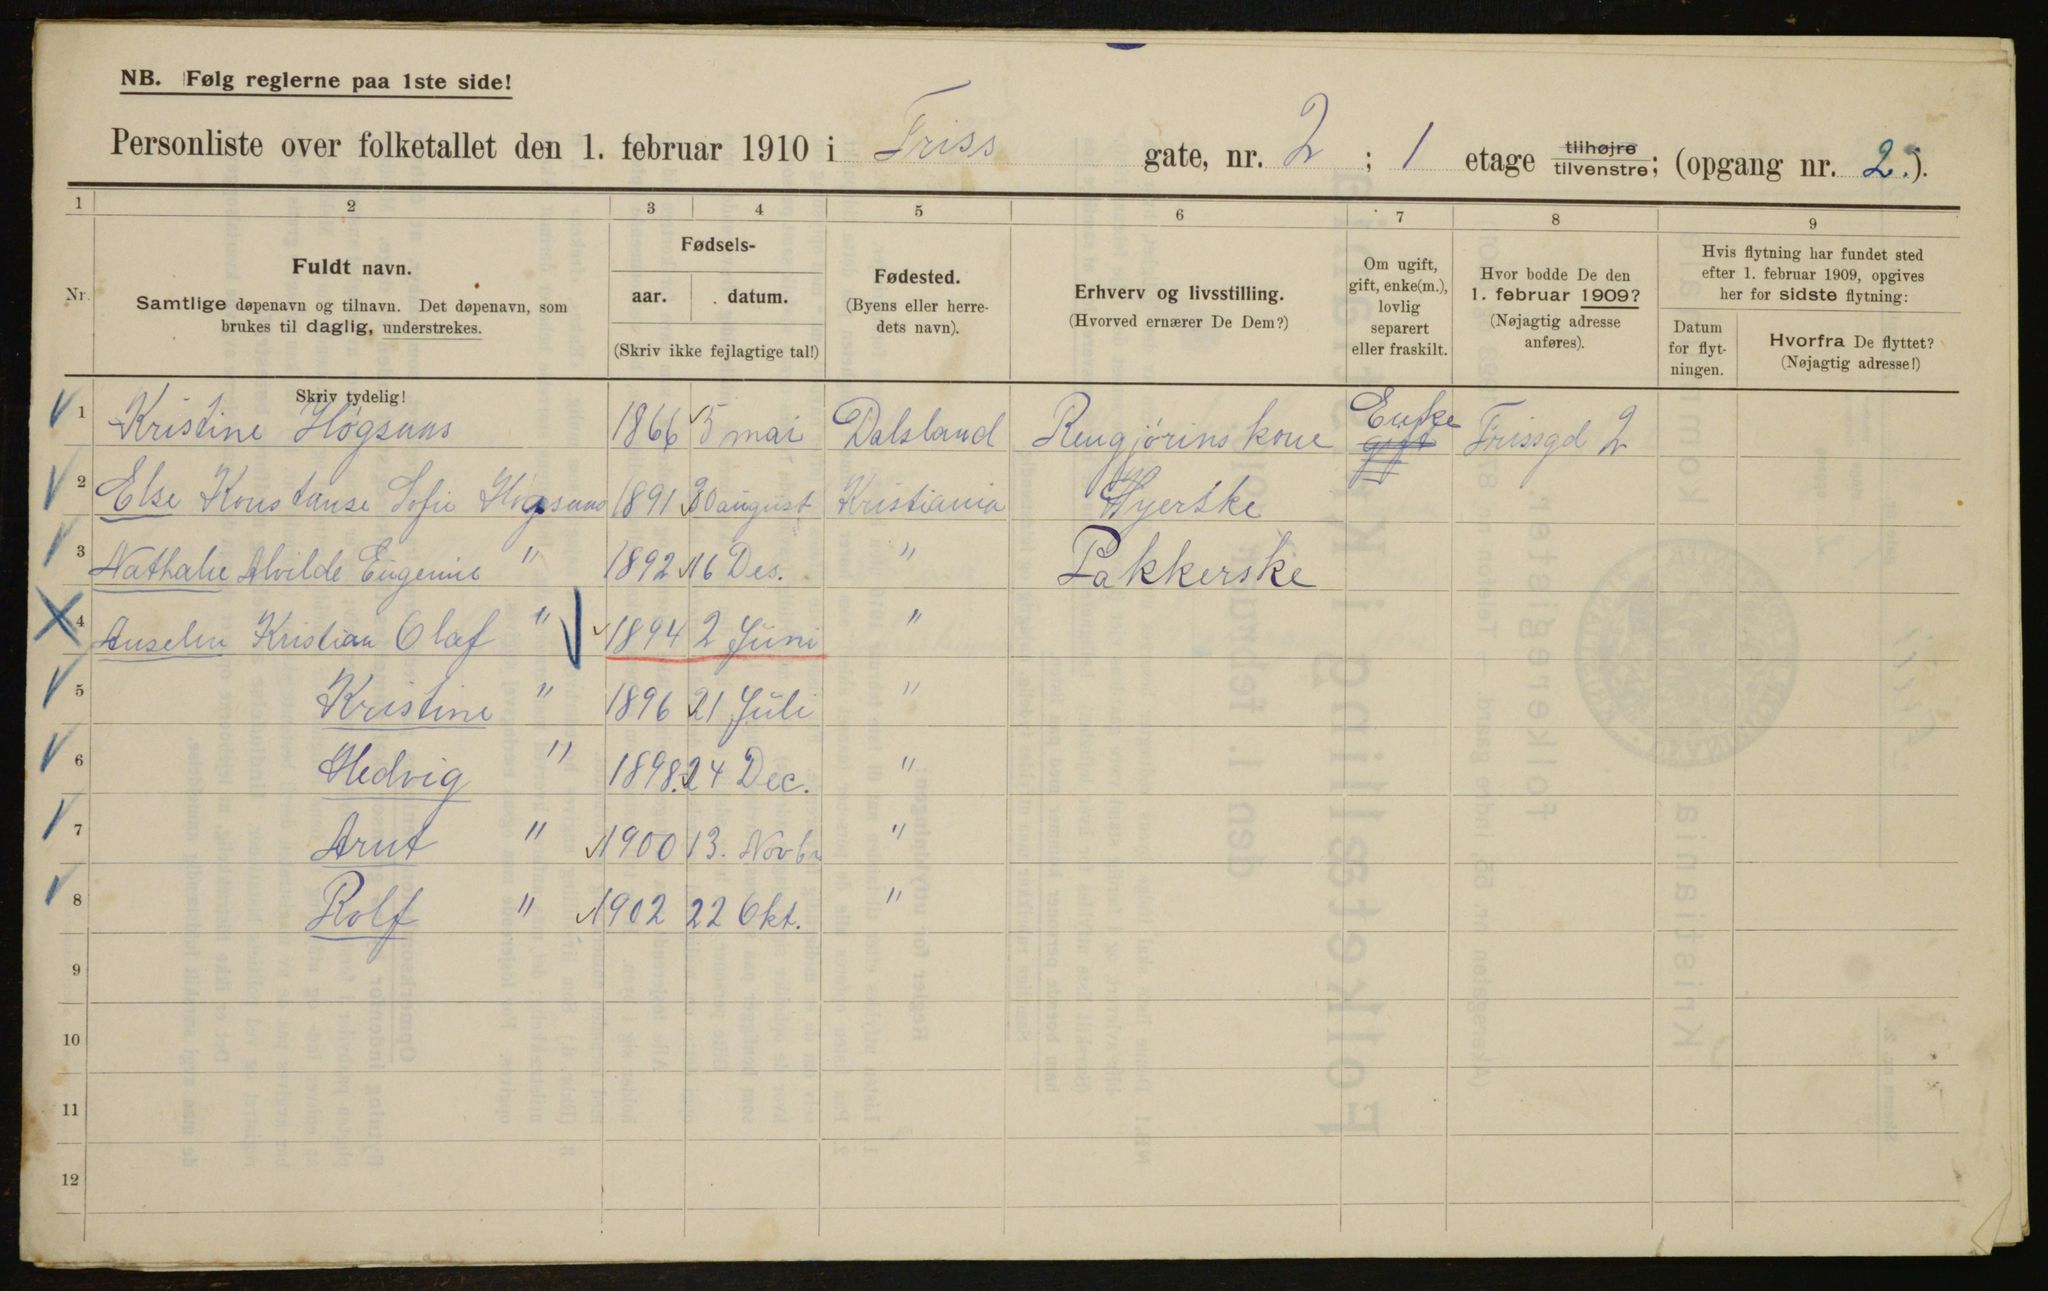 NB. Følg reglerne paa 1ste side!
Personliste over folketallet den 1. februar 1910 i Friss gate, nr. 2; 1 etage tilhøjre tilvenstre; (opgang nr. 2.).
1 2 3 4 5 6 7 8 9
Nr. Fuldt navn. Samtlige døpenavn og tilnavn. Det døpenavn, som brukes til daglig, understrekes.
Fødsels- aar. datum. (Skriv ikke fejlagtige tal!)
Fødested. (Byens eller herredets navn).
Erhverv og livsstilling. (Hvorved ernærer De Dem?)
Om ugift, gift, enke(m.), lovlig separert eller fraskilt.
Hvor bodde De den 1. februar 1909? (Nøjagtig adresse anføres).
Hvis flytning har fundet sted efter 1. februar 1909, opgives her for sidste flytning:
Datum for flytningen. Hvorfra De flyttet? (Nøjagtig adresse!)
Skriv tydelig!
1 Kristine Høgsaas 1866 5 mai Dalsland Rengjørinskone Enke gift Frissgd 2
2 Else Konstanse Sofie Høgsaas 1891 30 august Kristiania Syerske
3 Nathalie Alvilde Eugenie " 1892 16 Des. " Pakkerske
4 Anselm Kristian Olaf " 1894 2 Juni "
5 Kristine " 1896 21 Juli "
6 Hedvig " 1898. 24 Dec. "
7 Arnt " 1900 13. Novbr "
8 Rolf " 1902 22 Okt. "
9
10
11
12